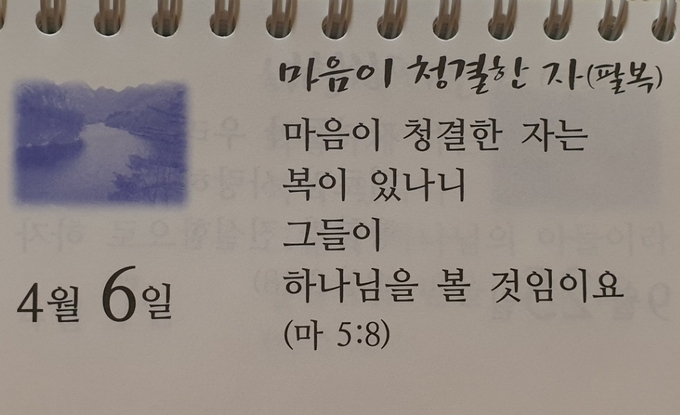 마음이 청결한 자(팔복)
마음이 청결한 자는
복이 있나니
그들이
하나님을 볼 것임이요
(마 5:8)
4월 6일